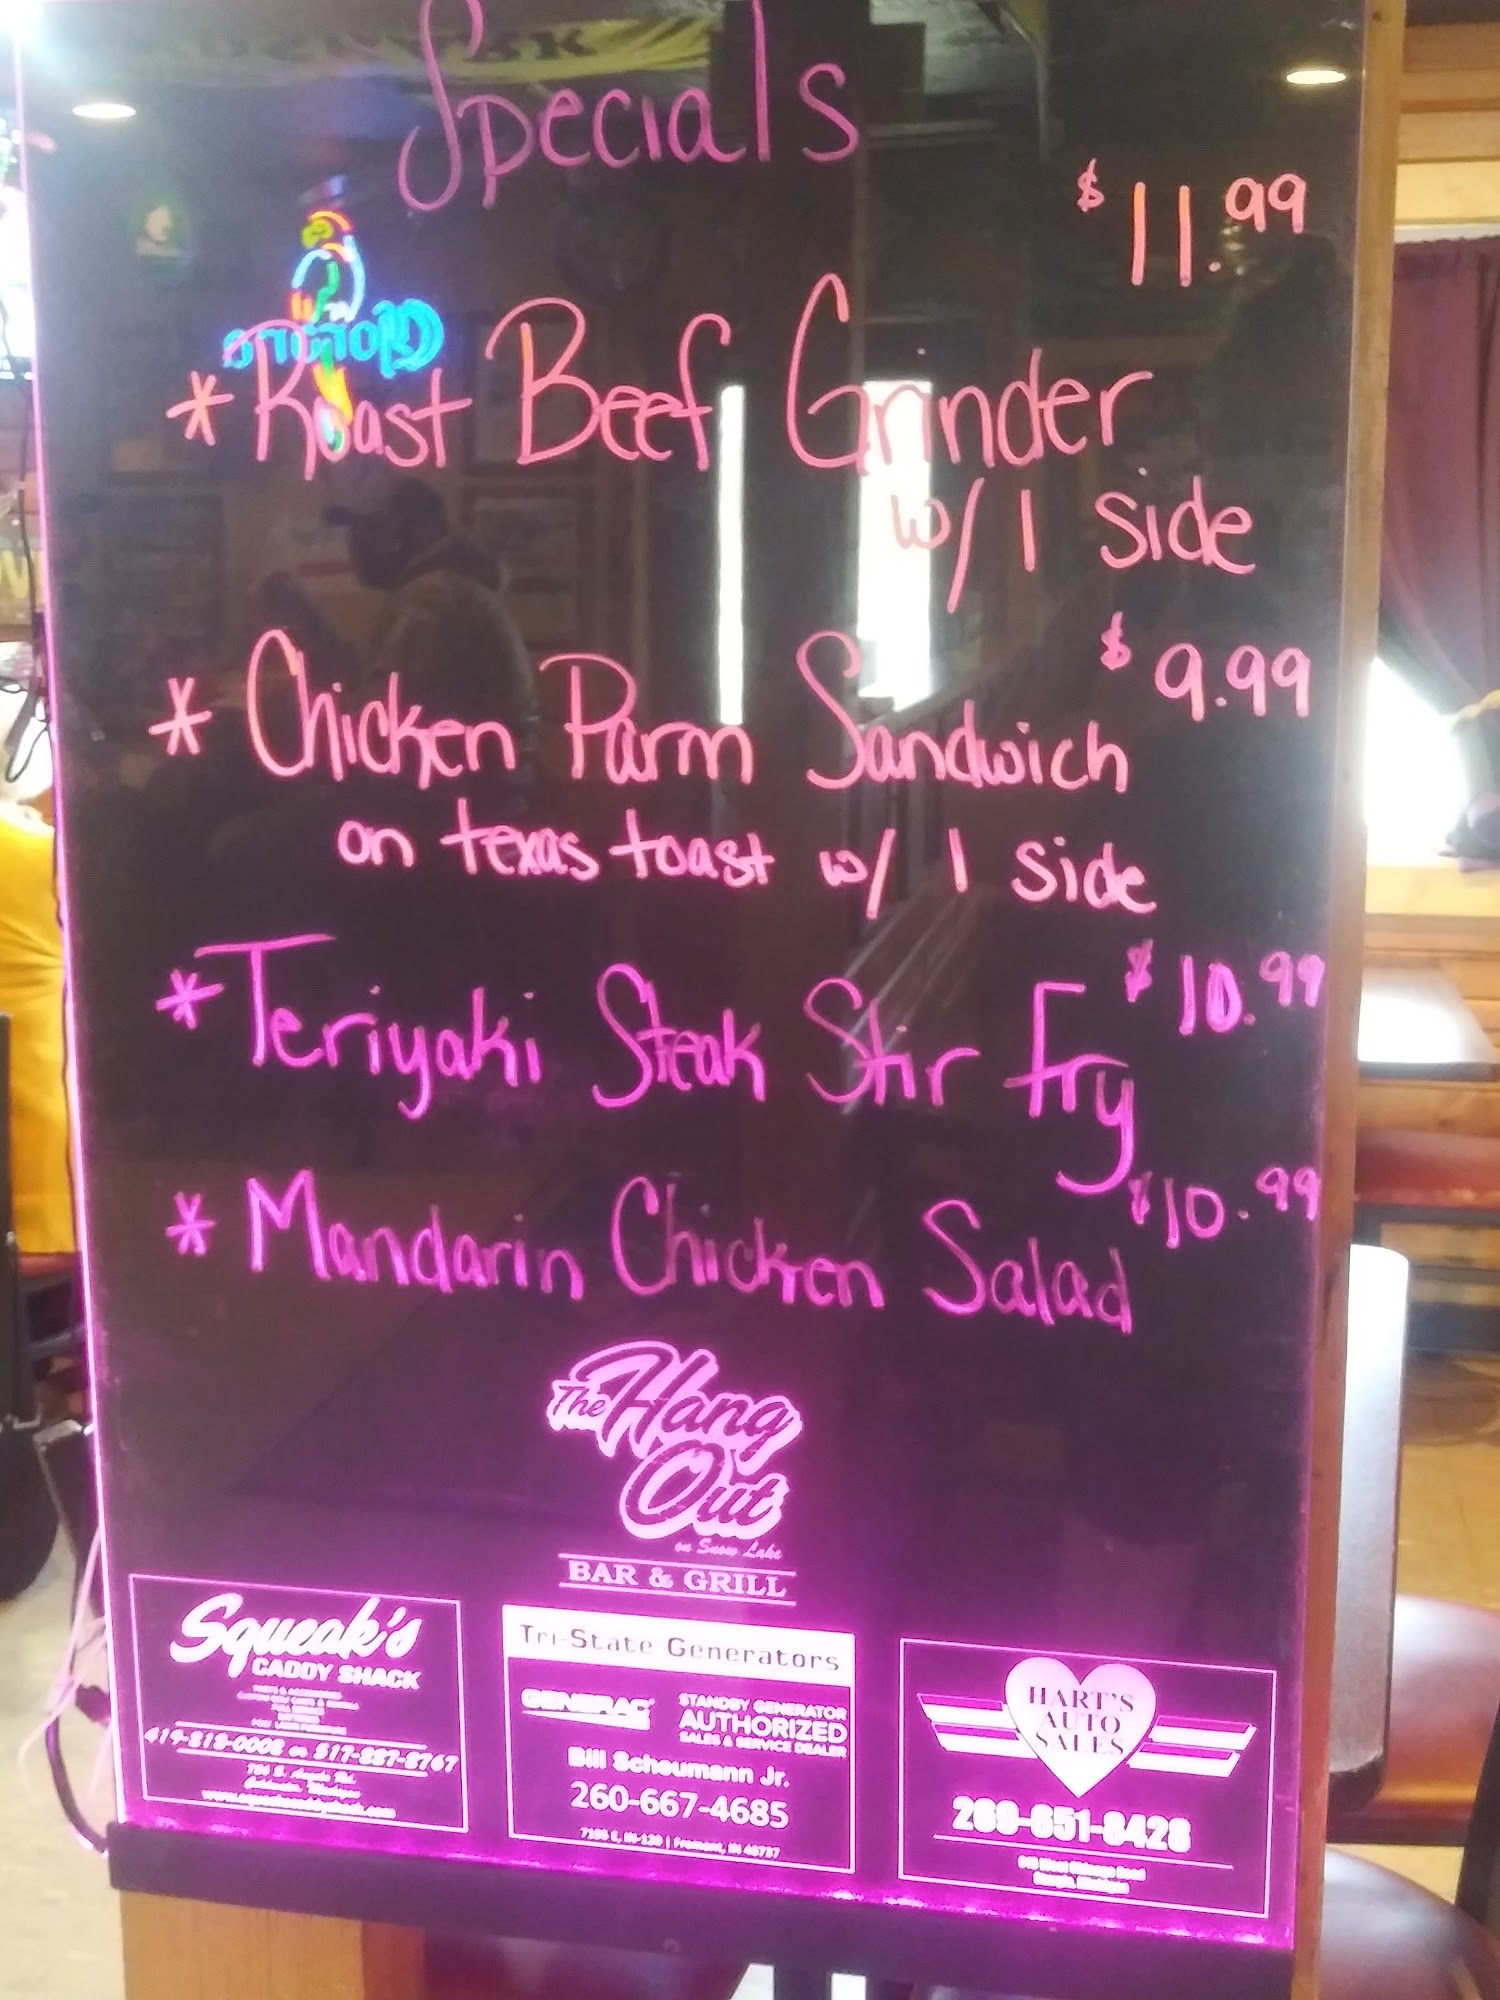 Specials
$11.99
* Roast Beef Grinder
w/ 1 side
$9.99
* Chicken Parm Sandwich
on texas toast w/ 1 side
$10.99
* Teriyaki Steak Stir Fry
$10.99
* Mandarin Chicken Salad
The Hang
Out
on Snow Lake
BAR & GRILL
Squeak's
CADDY SHACK
419-213-0008 or 517-287-8767
Tri-State Generators
GENERAC
STANDBY GENERATOR
AUTHORIZED
SALES & SERVICE DEALER
Bill Scheumann Jr.
260-667-4685
Fremont, IN 46737
HART'S
AUTO
SALES
269-651-8428